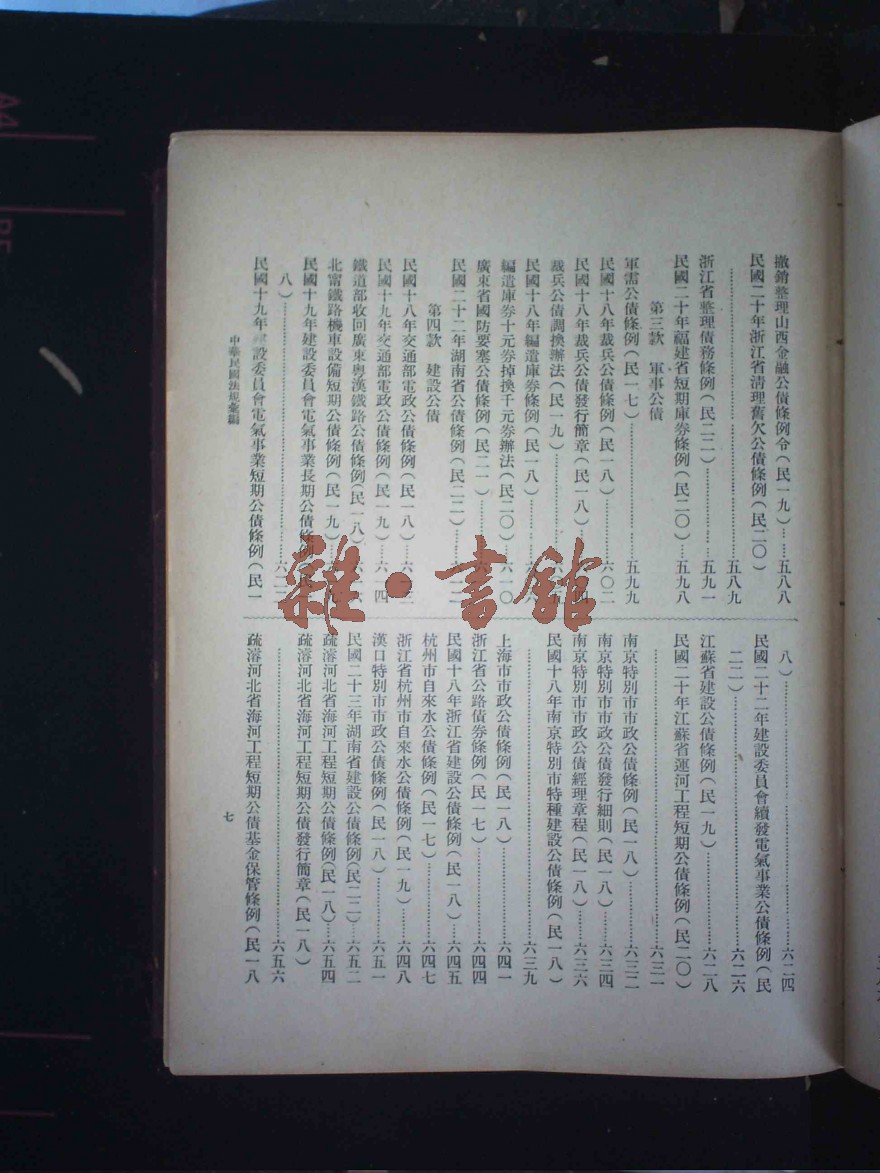 撤銷整理山西金融公債條例令(民一九)…五八八
民國二十年浙江省清理舊欠公債條例(民二〇)
…五八九
浙江省整理債務條例(民二二)…五九一
民國二十年福建省短期庫券條例(民二〇)…五九八
第三款 軍事公債
軍需公債條例(民一七)…五九九
民國十八年裁兵公債條例(民一八)…六〇二
民國十八年裁兵公債發行簡章(民一八)
裁兵公債調換辦法(民一九)
民國十八年編遣庫券條例(民一八)
編遣庫券十元券掉換千元券辦法(民二〇)…六一〇
廣東省國防要塞公債條例(民二一)
民國二十二年湖南省公債條例(民二二)
第四款 建設公債
民國十八年交通部電政公債條例(民一八)
民國十九年交通部電政公債條例(民一九)…六一四
鐵道部收回廣東粵漢鐵路公債條例(民一八)
北甯鐵路機車設備短期公債條例(民一九)
民國十九年建設委員會電氣事業長期公債條例(民一
八)
民國十九年建設委員會電氣事業短期公債條例(民一
八)…六二四
民國二十二年建設委員會續發電氣事業公債條例(民
二二)…六二六
江蘇省建設公債條例(民一九)…六二八
民國二十年江蘇省運河工程短期公債條例(民二〇)
…六三一
南京特別市市政公債條例(民一八)…六三二
南京特別市市政公債發行細則(民一八)…六三四
南京特別市市政公債經理章程(民一八)…六三六
民國十八年南京特別市特種建設公債條例(民一八)
…六三九
上海市市政公債條例(民一八)…六四一
浙江省公路債券條例(民一七)…六四四
民國十八年浙江省建設公債條例(民一八)…六四五
杭州市自來水公債條例(民一七)…六四七
浙江省杭州市自來水公債條例(民一九)…六四八
漢口特別市市政公債條例(民一八)…六五一
民國二十三年湖南省建設公債條例(民二二)…六五二
疏濬河北省海河工程短期公債條例(民一八)…六五四
疏濬河北省海河工程短期公債發行簡章(民一八)
…六五六
疏濬河北省海河工程短期公債基金保管條例(民一八
中華民國法規彙編
七
雜·書館